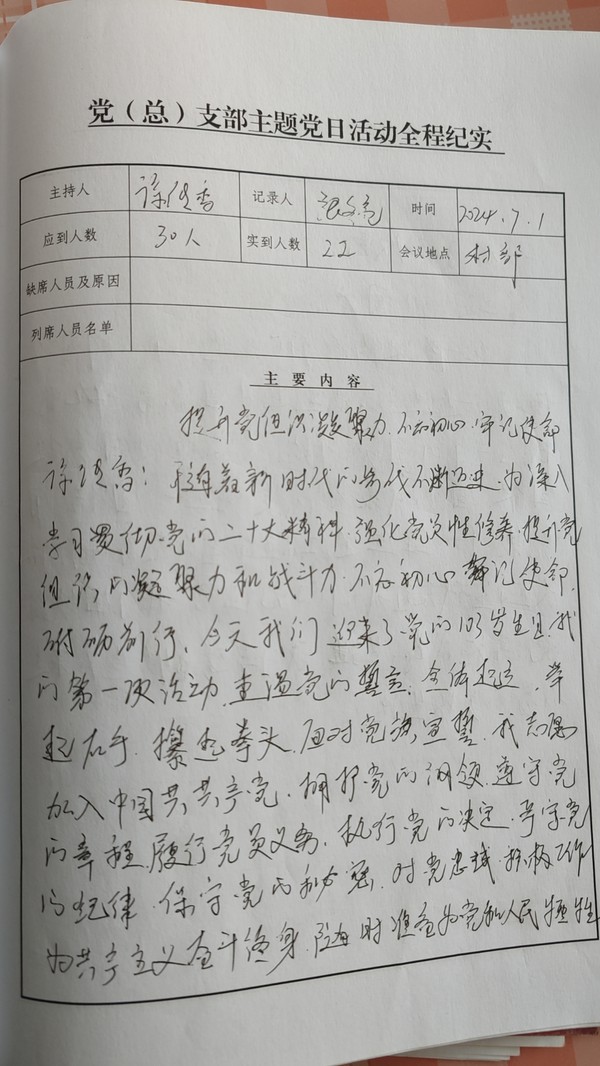 党（总）支部主题党日活动全程纪实
主持人 徐传香 记录人 时间 2024.7.1
应到人数 30人 实到人数 22 会议地点 村部
缺席人员及原因
列席人员名单
主要内容
提升党组织凝聚力、不忘初心、牢记使命
徐传香：随着新时代的步伐不断迈进、为深入
学习贯彻党的二十大精神、强化党员党性修养、提升党
组织的凝聚力和战斗力、不忘初心 牢记使命、
砥砺前行、今天我们迎来了党的103岁生日、我
的第一次活动、重温党的誓言、全体起立、举
起右手、攥起拳头、面对党旗宣誓、我志愿
加入中国共共产党、拥护党的纲领、遵守党
的章程、履行党员义务、执行党的决定、严守党
的纪律、保守党的秘密、对党忠诚、积极工作
为共产主义奋斗终身、随时准备为党和人民牺牲